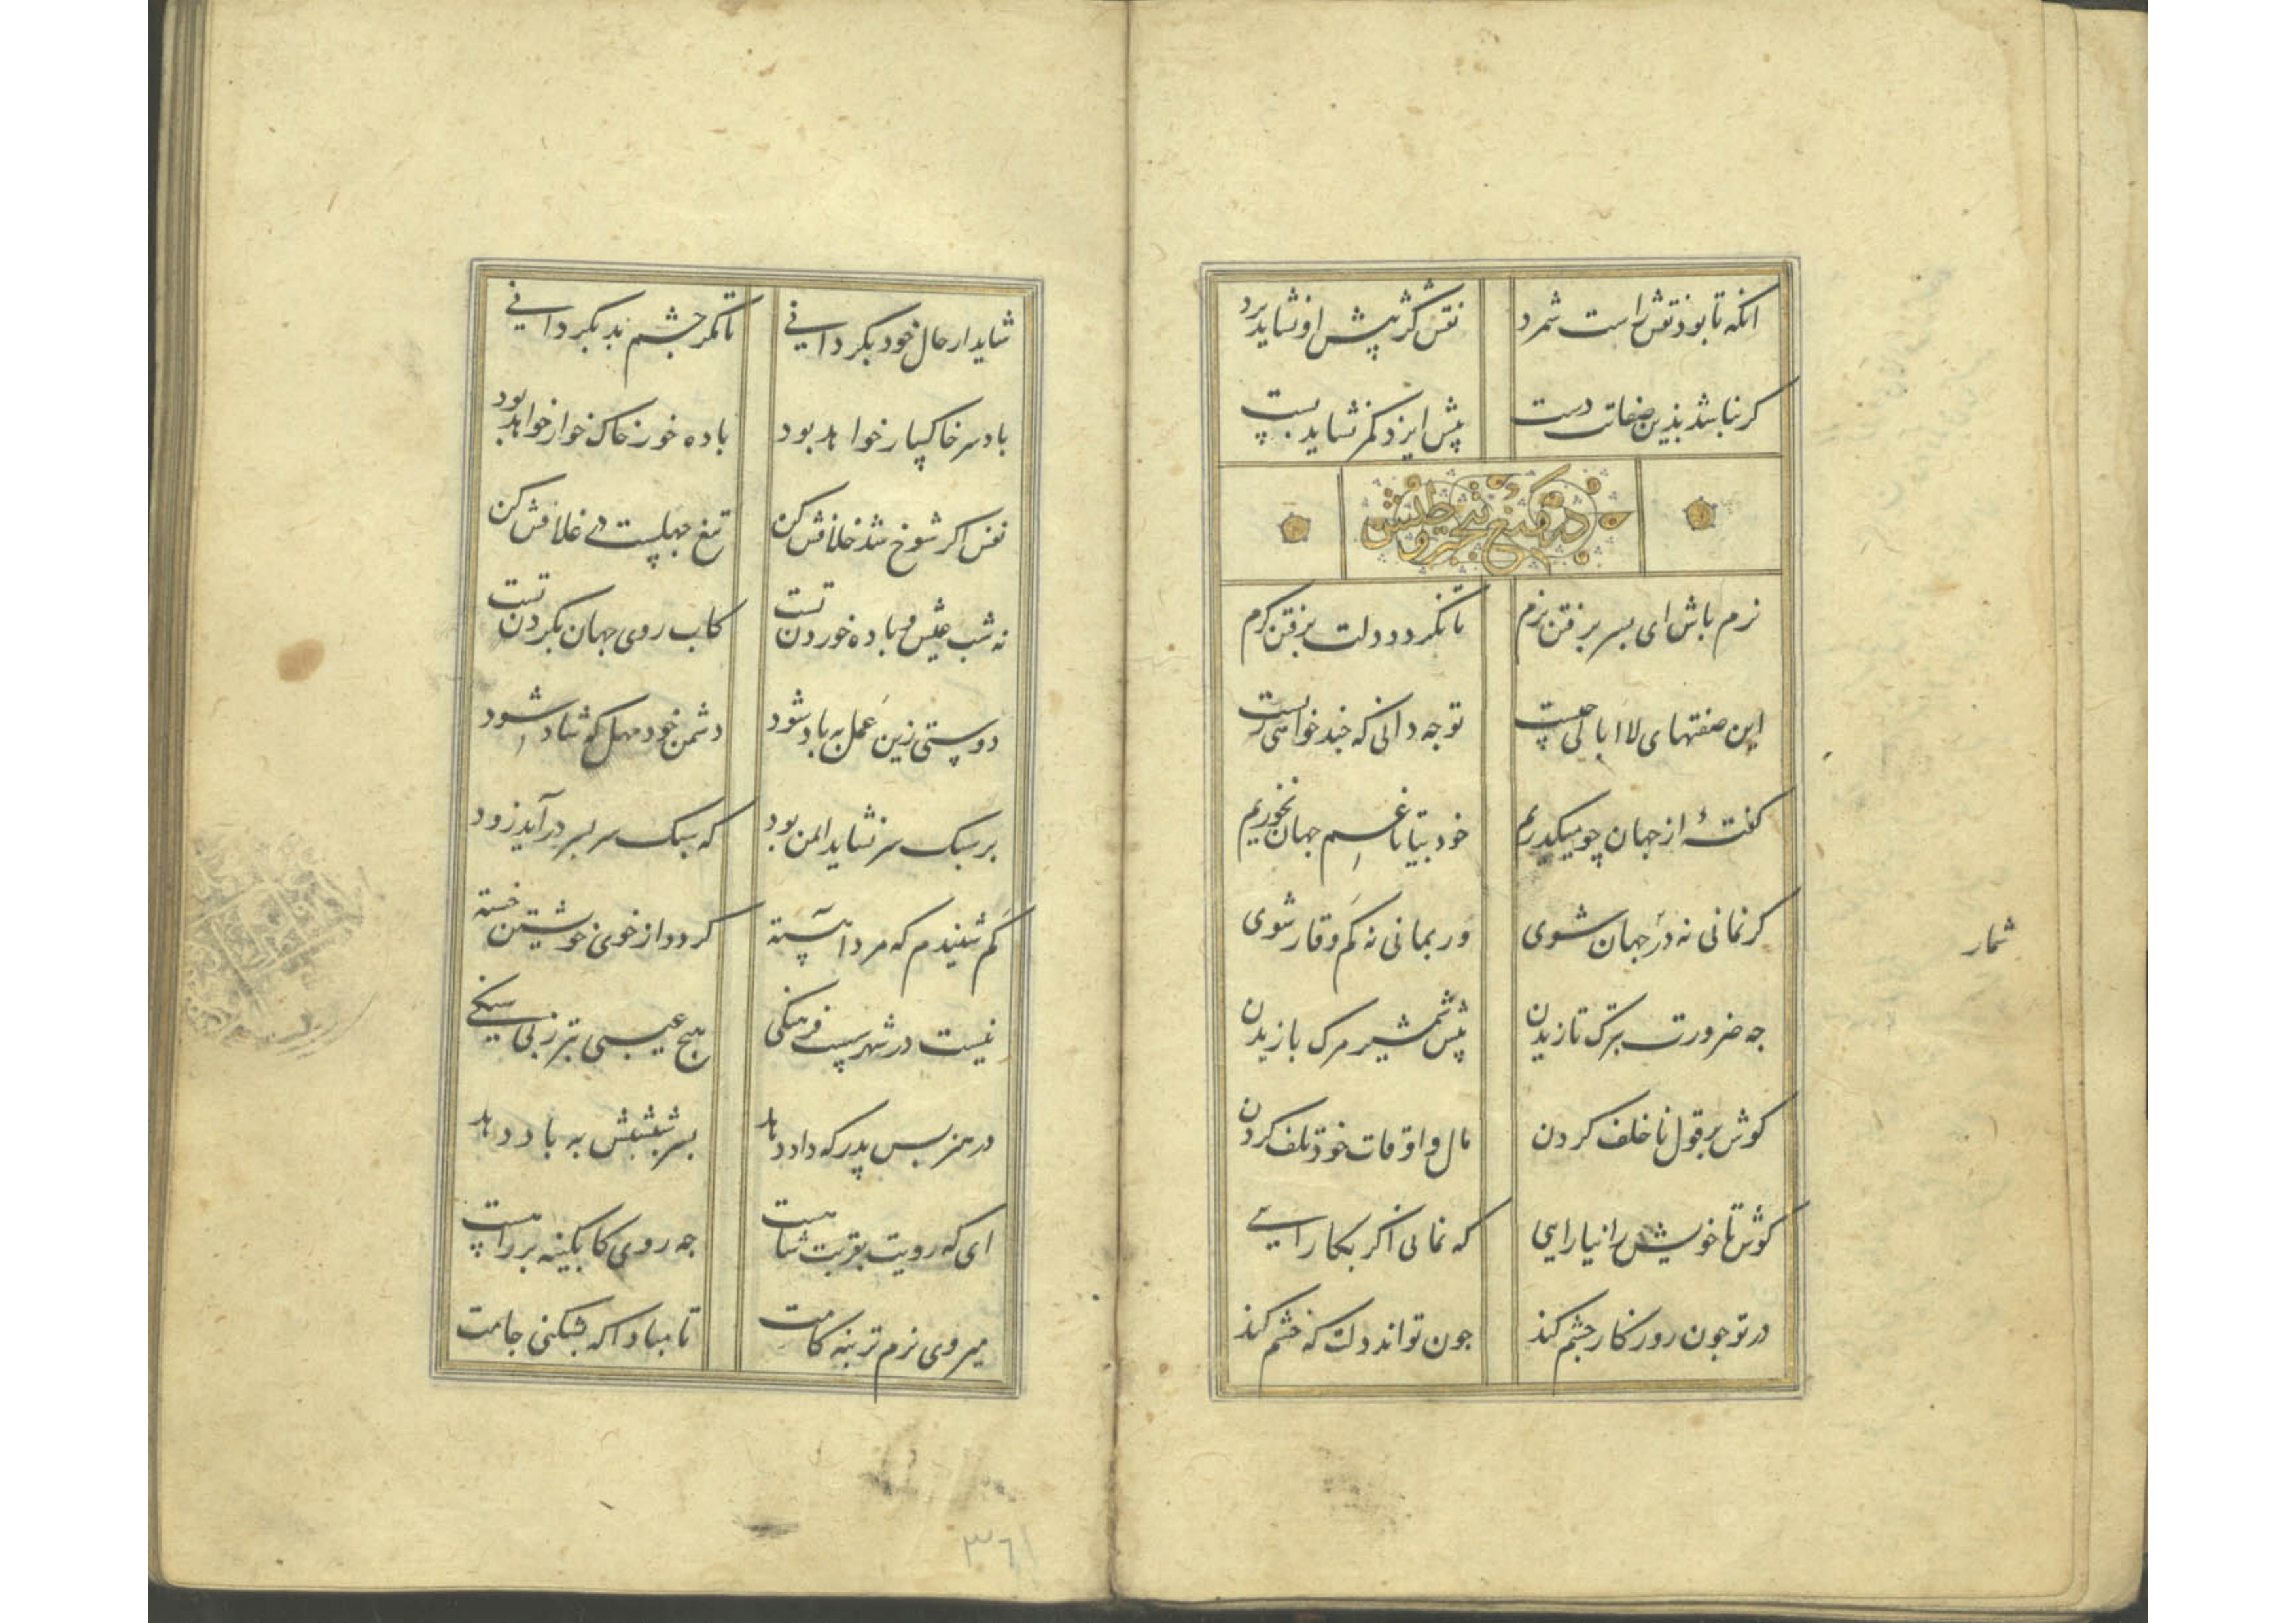 انکه تا بود نقش راست شمرد نقش کژ پیش او نشاید برد
کر نباشد بذین صفات دست پیش ایزد کمر نشاید بست
در منع تجبر و طیش
نرم باش ای پسر برفتن نرم تا نکردد دلت برفتن کرم
این صفتهای لا ابالی چیست تو جه دانی که جند خواهی زیست
کفتهٔ از جهان چو میکذریم خود بیا تا غم جهان نخوریم
کر نمانی نه در جهان شوی ور بمانی نه کم وقار شوی
شمار
جه ضرورت بترک تازیدن پیش شمشیر مرک بازیدن
کوش بر قول ناخلف کردن مال و اوقات خود تلف کردن
کوش تا خویش را نیارایی که نمانی اکر بکار آیی
در تو جون روزکار جشم کند جون تواند دلت که خشم کند
شاید ار حال خود بکردانی تا مکر جشم بد بکردانی
باد سر خاکسار خواهد بود باده خور خاک خوار خواهد بود
نفس اکر شوخ شد خلافش کن تیغ جهلست در غلافش کن
نه شب عیش و باده خوردن تست کاب روی جهان بکردن تست
دوستی زین عمل به باد شود دشمن خود مهل که شاد شود
بر سبک سر نشاید ایمن بود که سبک سر بسر درآید زود
کم شنیدم که مرد آهسته کردد از خوی خویشتن خسته
نیست در شهرست فرهنکی هیج عیبی بتر ز بی سنکی
در هنر بس پدر که داد دهد پسر شبشبش به باد دهد
ای که رویت بقربت شاهست جه روی کابکینه بر راهست
میروی نرم تر بنه کامت تا مبادا که بشکنی جامت
۳٦۱